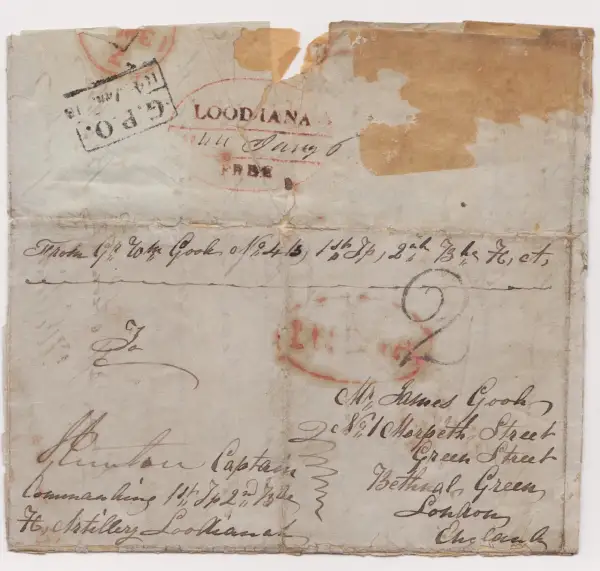 G.P.O.
LOODIANA
Jany 6
FREE
From Gr. Wm Gook No 43, 1st Tp, 2nd Bde H, A,
2
To
Mr James Gook
No 1 Morpeth Street
Green Street
Bethnal Green
London
England
Captain
Commanding 1st Tp 2nd Bde
H. Artillery Loodianah